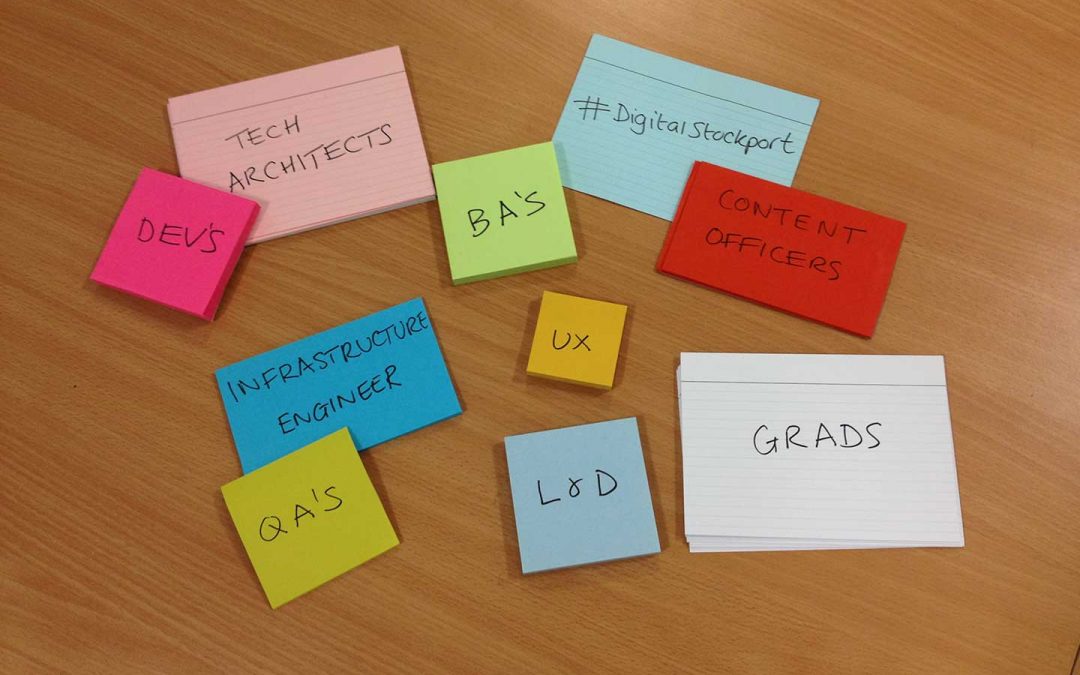 TECH
ARCHITECTS
#DigitalStockport
DEV'S
BA'S
CONTENT
OFFICERS
INFRASTRUCTURE
ENGINEER
UX
GRADS
QA'S
L&D